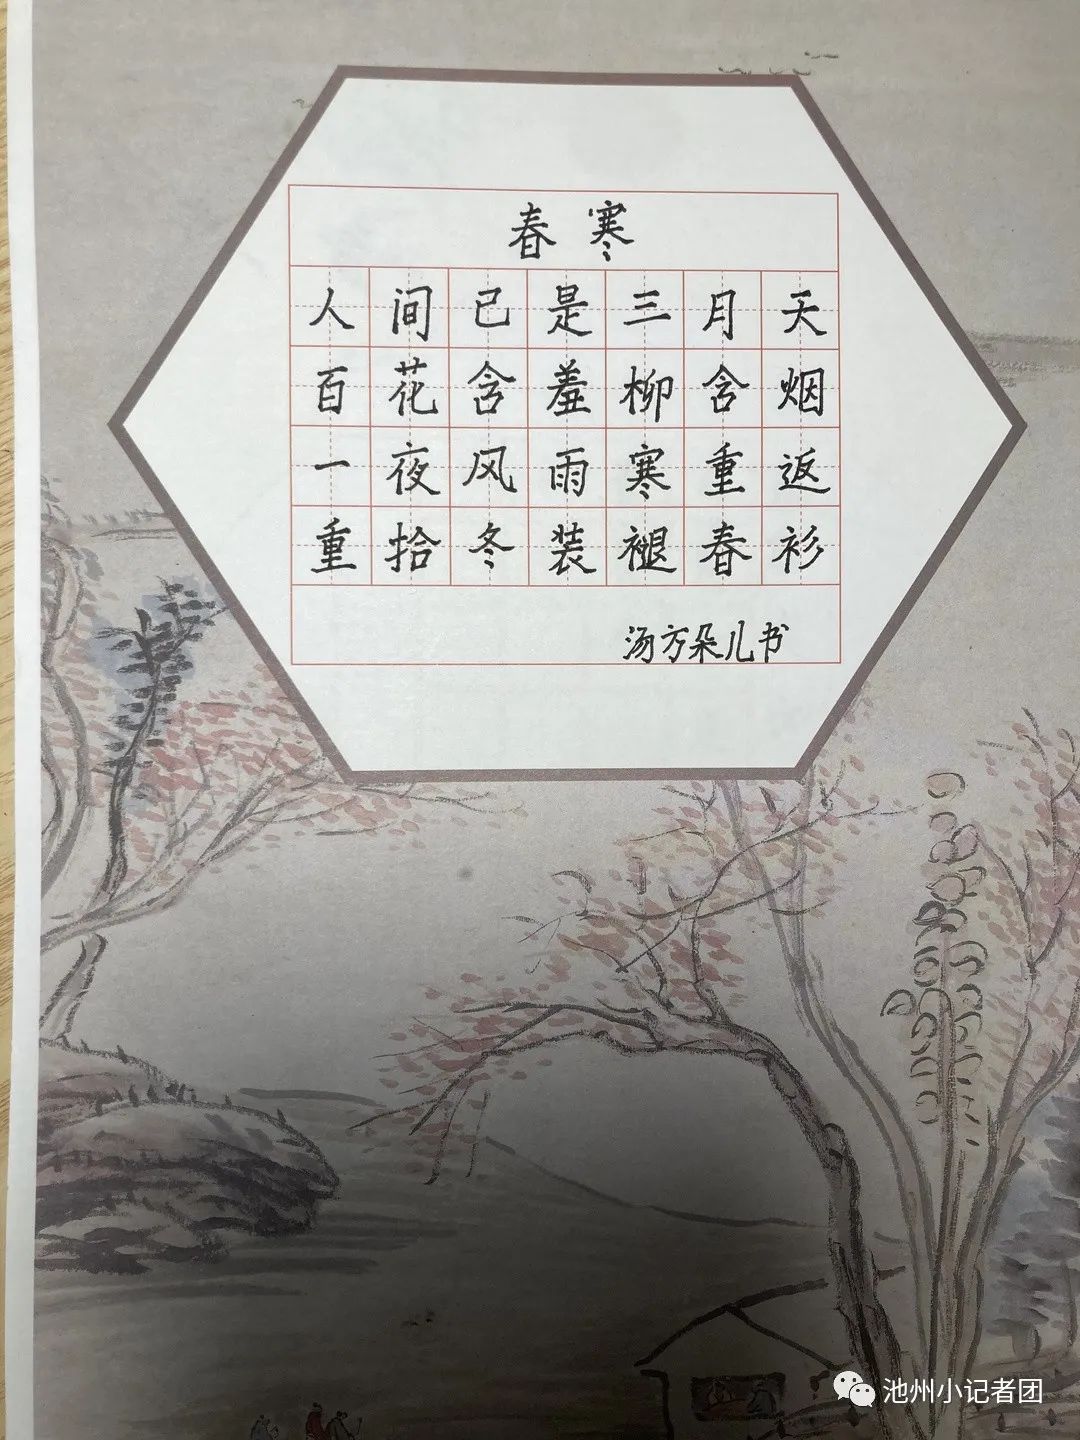 春寒
人间已是三月天
百花含羞柳含烟
一夜风雨寒重返
重拾冬装褪春衫
汤方朵儿书
池州小记者团